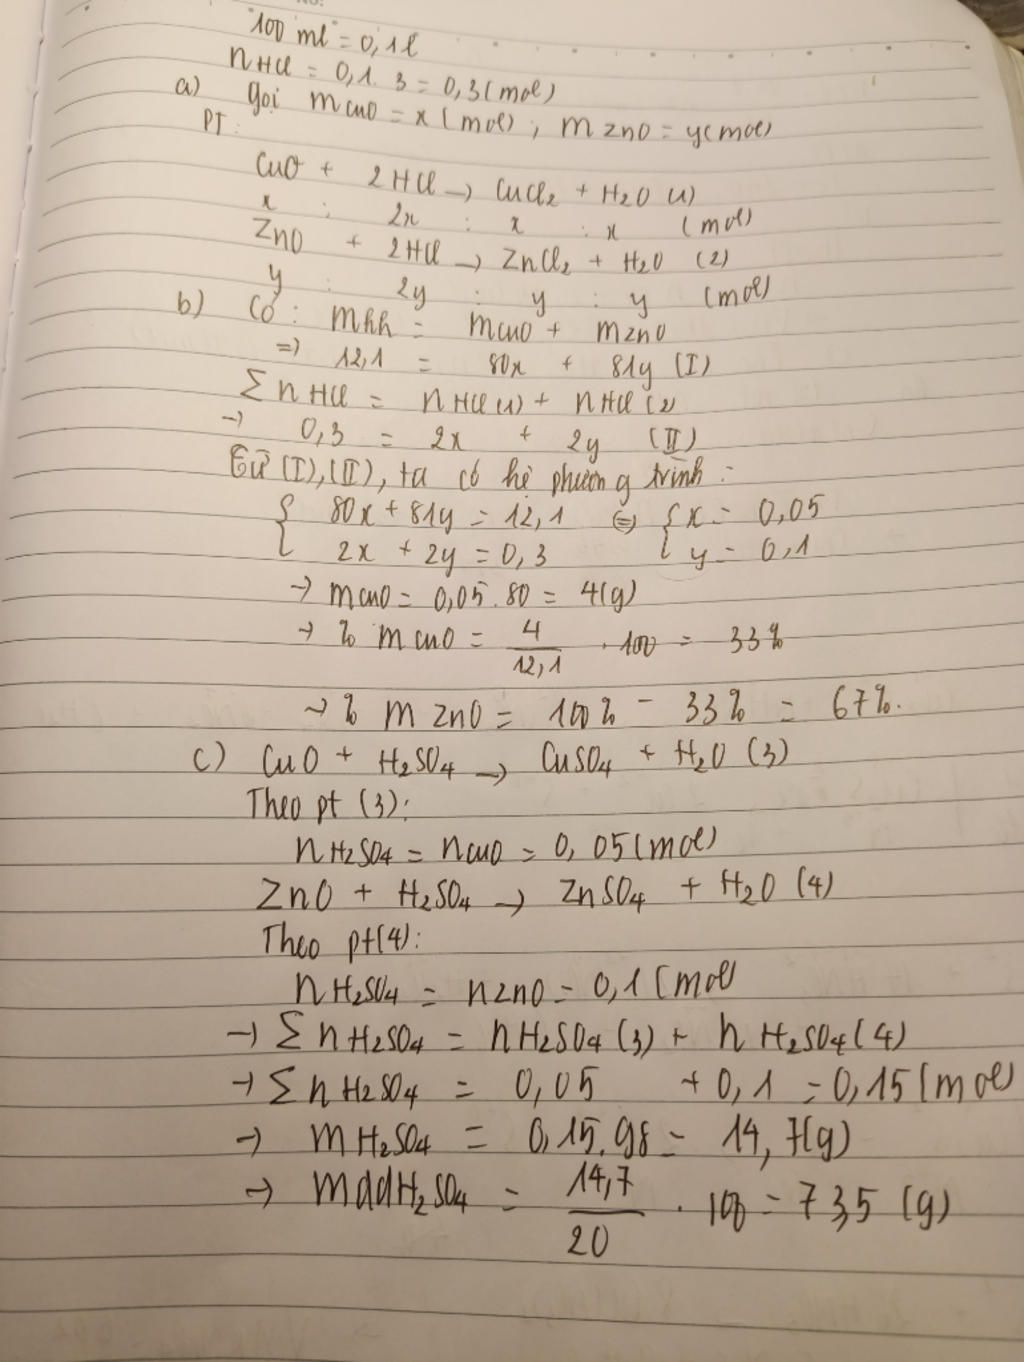 100 ml = 0,1l
nHCl = 0,1. 3 = 0,3 (mol)
a) gọi mCuO = x (mol) ; m ZnO = y(mol)
PT :
CuO + 2HCl → CuCl₂ + H₂O (1)
x : 2x : x : x (mol)
ZnO + 2HCl → ZnCl₂ + H₂O (2)
y : 2y : y : y (mol)
b) Có : mhh = mCuO + mZnO
=> 12,1 = 80x + 81y (I)
Σ n HCl = nHCl(1) + nHCl(2)
→ 0,3 = 2x + 2y (II)
Từ (I),(II), ta có hệ phương trình :
{ 80x + 81y = 12,1 ⇔ { x = 0,05
2x + 2y = 0,3 y = 0,1
→ mCuO = 0,05.80 = 4(g)
→ % m CuO = 4/12,1 . 100 = 33%
→ % m ZnO = 100% - 33% = 67%.
c) CuO + H₂SO₄ → CuSO₄ + H₂O (3)
Theo pt (3):
nH₂SO₄ = nCuO = 0,05 (mol)
ZnO + H₂SO₄ → ZnSO₄ + H₂O (4)
Theo pt(4):
nH₂SO₄ = nZnO = 0,1 (mol
→ Σ nH₂SO₄ = nH₂SO₄ (3) + nH₂SO₄(4)
→ Σ nH₂SO₄ = 0,05 + 0,1 = 0,15 (mol)
→ mH₂SO₄ = 0,15.98 = 14,7(g)
→ mddH₂SO₄ = 14,7/20 . 100 = 73,5 (g)